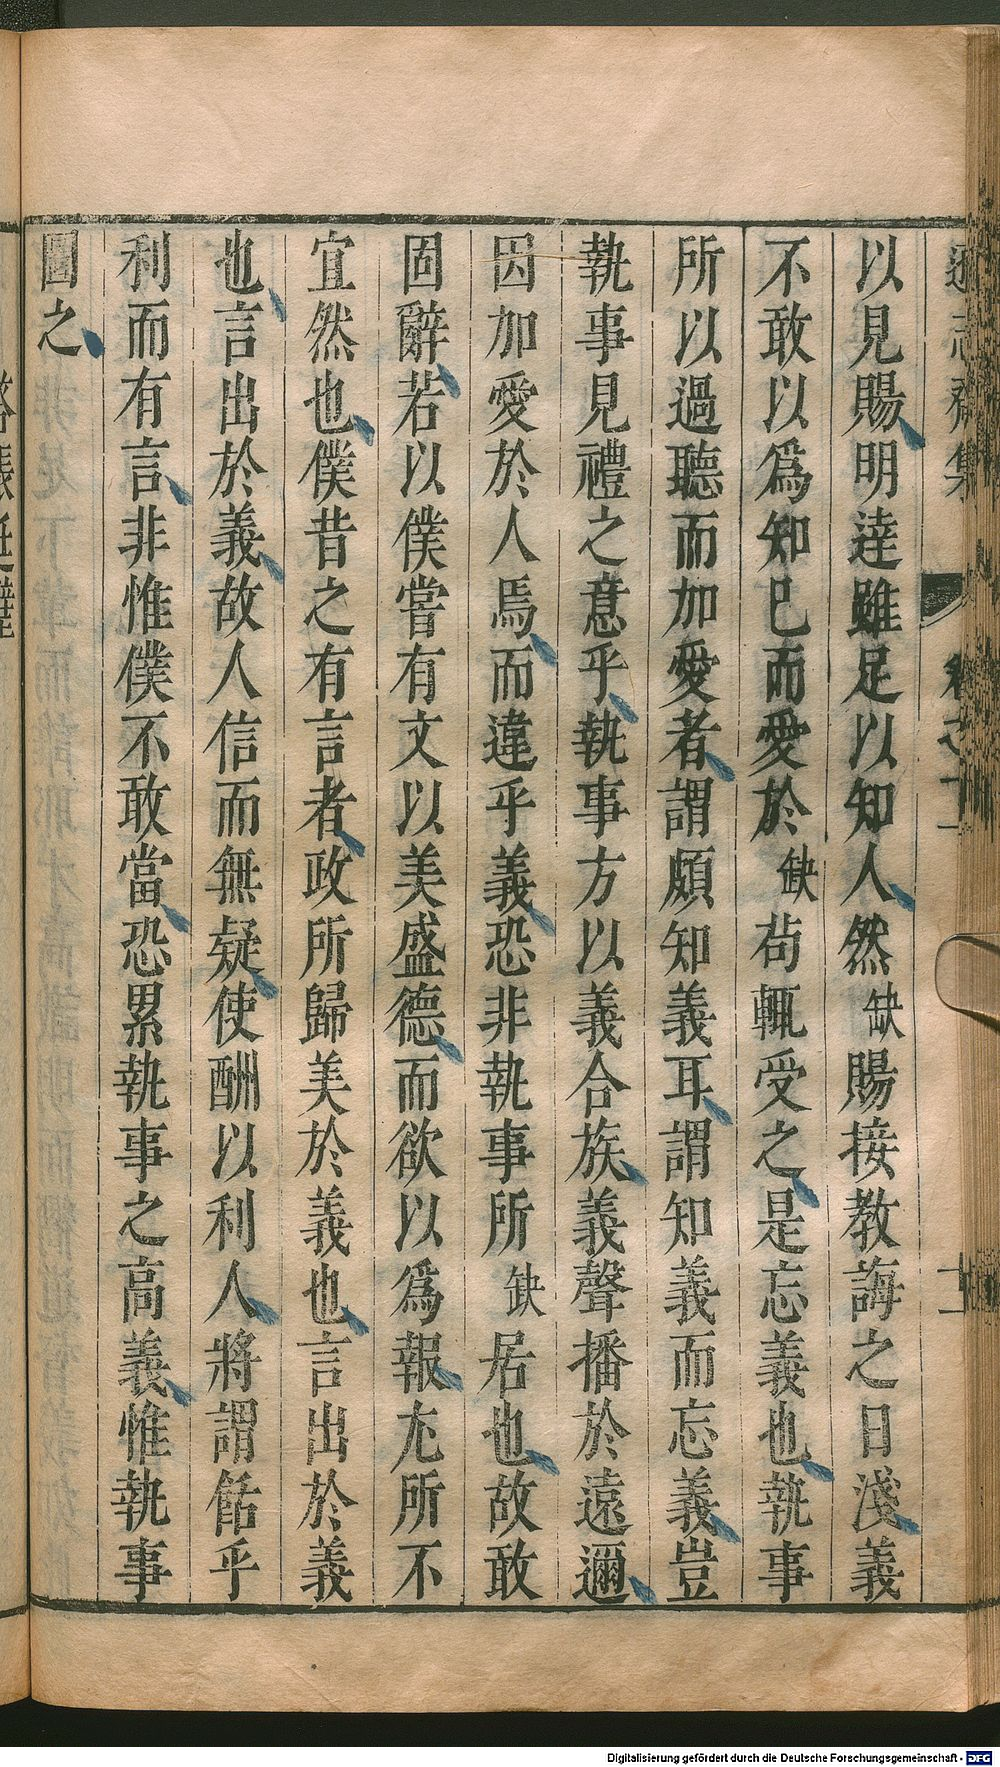 遜志齋集
卷之十一
十一
以見賜明達雖足以知人然缺賜接教誨之日淺義
不敢以爲知已而愛於缺苟輒受之是忘義也執事
所以過聽而加愛者謂頗知義耳謂知義而忘義豈
執事見禮之意乎執事方以義合族義聲播於遠邇
因加愛於人焉而違乎義恐非執事所缺居也故敢
固辭若以僕嘗有文以美盛德而欲以爲報尤所不
宜然也僕昔之有言者政所歸美於義也言出於義
也言出於義故人信而無疑使酬以利人將謂餂乎
利而有言非惟僕不敢當恐累執事之高義惟執事
圖之
Digitalisierung gefördert durch die Deutsche Forschungsgemeinschaft - DFG